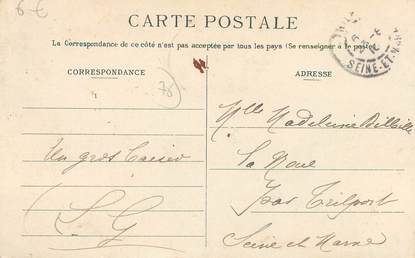 6 €
CARTE POSTALE
La Correspondance de ce côté n'est pas acceptée par tous les pays (Se renseigner à la poste)
CORRESPONDANCE
ADRESSE
SEINE-ET-M
78
Mlle Madeleine Billiille
Un gros baiser
La Noue
par Trilport
L G
Seine et Marne